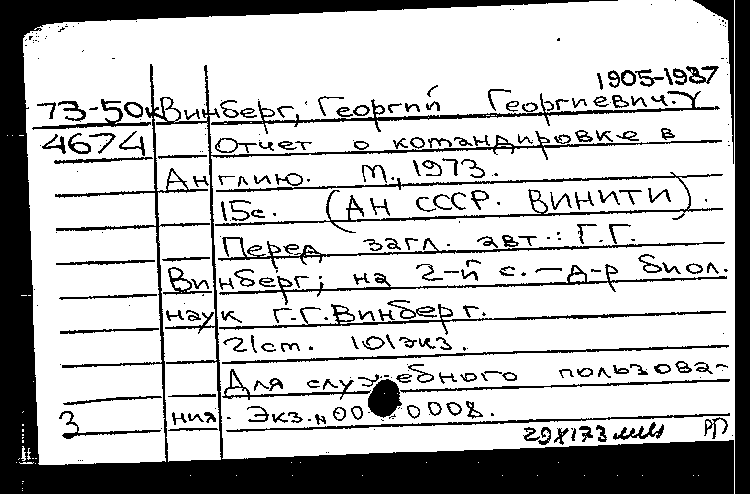 1905-1987
73-50к Винберг, Георгий Георгиевич.
4674 Отчет о командировке в
Англию. М., 1973.
15с. (АН СССР. ВИНИТИ).
Перед загл. авт.: Г.Г.
Винберг; на 2-й с. - д-р биол.
наук Г.Г. Винберг.
2/ст. 101экз.
Для служебного пользова-
3 ния. Экз. N 00 0008.
29х173 мм РП